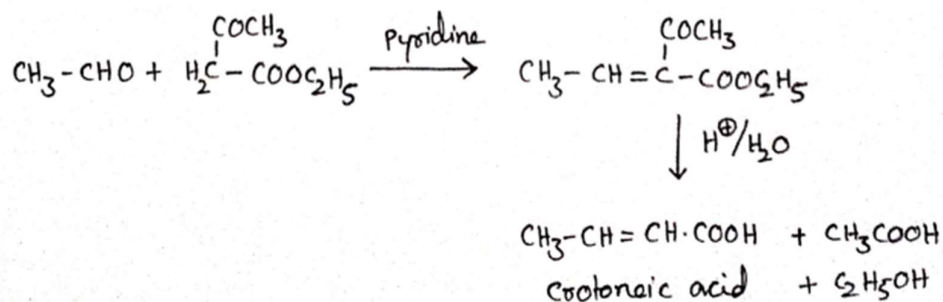 COCH₃
CH₃-CHO + H₂C-COOC₂H₅
Pyridine
COCH₃
CH₃-CH=C-COOC₂H₅
H⊕/H₂O
CH₃-CH=CH·COOH + CH₃COOH
Crotonaic acid + C₂H₅OH